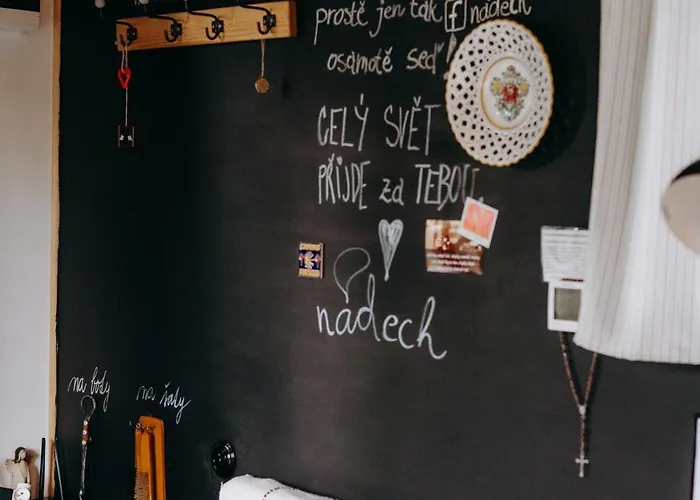 prostě jen tak f nádech
osamotě seď!
CELÝ SVĚT
PŘIJDE za TEBOU.
nádech
na body
na šaty